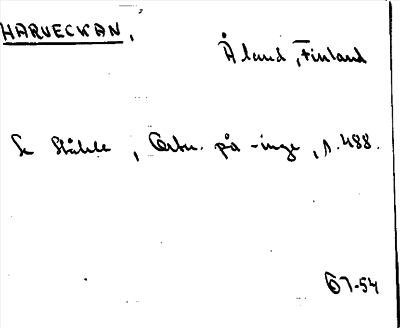 HARVECKAN,
Åland, Finland
Se Ståhle, Ortn. på -inge, s. 488.
67-54